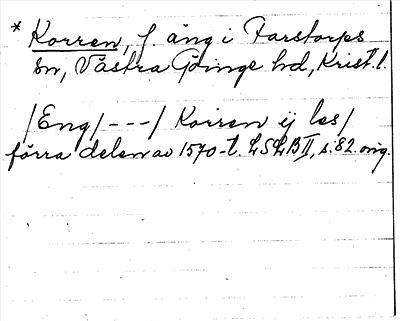 * Korren, f. äng i Farstorps
sn, Västra Göinge hd, Krist. l.
/Eng/ --- / Korren ij les/
förra delen av 1570-t. LSLB II, s. 82. orig.